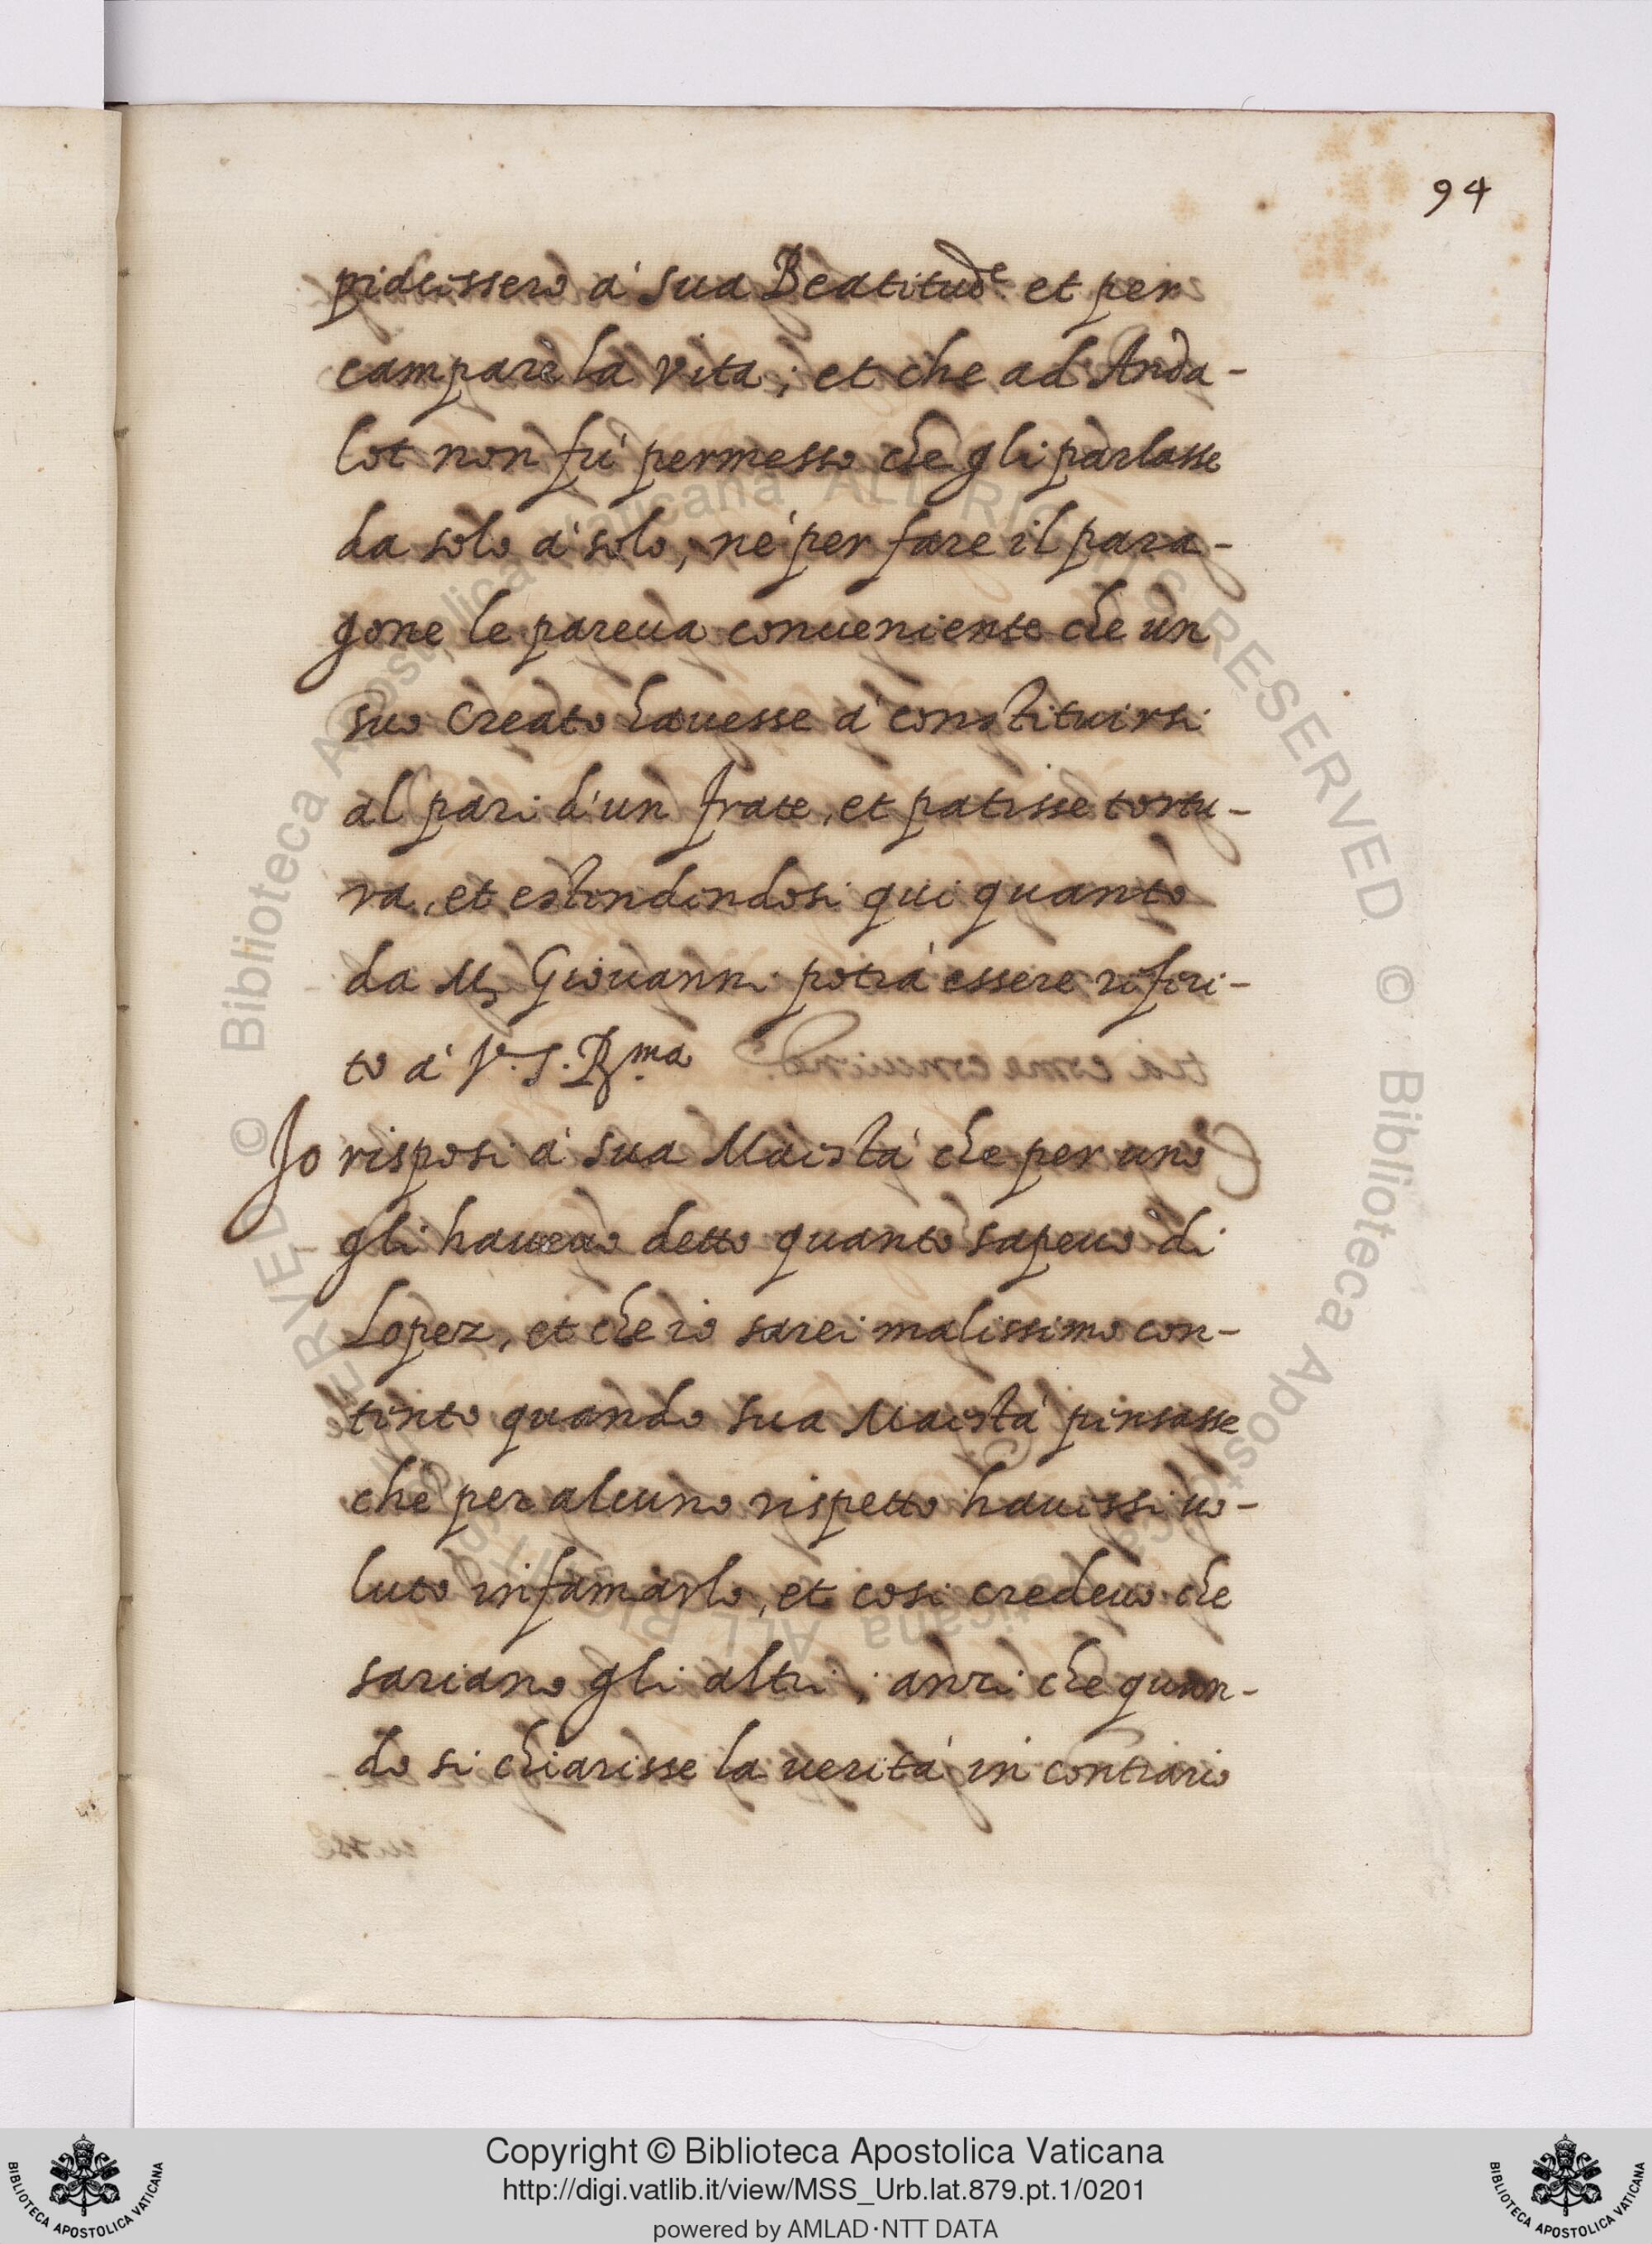 94
piacessero à sua Beatitud.e et per
campare la vita; et che ad Anda-
lot non fù permesso che gli parlasse
da solo à solo, ne per fare il para-
gone le pareua conueniente che un
suo Creato hauesse à constituirsi
al pari d'un frate, et patisse tortu-
ra, et estendendosi qui quanto
da M. Giouanni potrà essere riferi-
to à V. S. R.ma
Jo risposi à sua Maestà che per uno
gli haueuo detto quanto sapeuo di
Lopez, et che io sarei malissimo con-
tento quando sua Maestà pensasse
che per alcuno rispetto hauessi uo-
luto infamarlo, et cosi credeuo che
sariano gli altri; anzi che quan-
do si chiarisse la uerità in contrario
Copyright © Biblioteca Apostolica Vaticana
http://digi.vatlib.it/view/MSS_Urb.lat.879.pt.1/0201
powered by AMLAD·NTT DATA
BIBLIOTECA APOSTOLICA VATICANA
BIBLIOTECA APOSTOLICA VATICANA